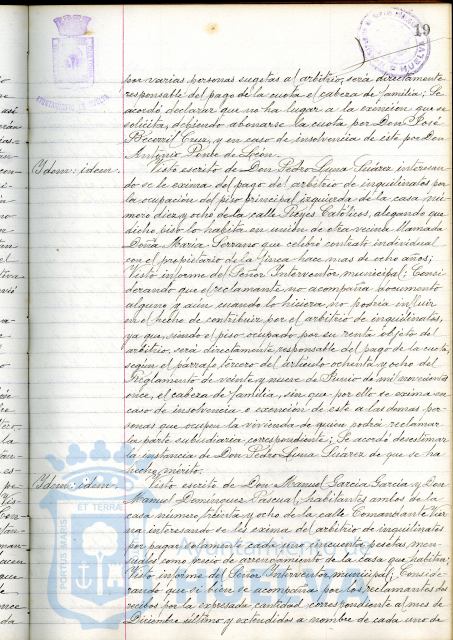 19
por varias personas sugetas al arbitrio, será directamente
responsable del pago de la cuota el cabeza de familia; Se
acordó declarar que no ha lugar a la exención que se
solicita, debiendo abonarse la cuota por Don José
Becerril Cruz, y en caso de insolvencia de este por Don
Antonio Ponce de León.
Idem: idem.
Visto escrito de Don Pedro Luna Suárez interesan-
do se le exima del pago del arbitrio de inquilinatos por
la ocupación del piso principal izquierda de la casa nú-
mero diez y ocho de la calle Reyes Católicos, alegando que
dicho piso lo habita en unión de otra vecina llamada
Doña María Serrano que celebró contrato individual
con el propietario de la finca hace mas de ocho años;
Visto informe del Señor Interventor municipal; Consi-
derando que el reclamante no acompaña documento
alguno y aún cuando lo hiciera no podría influir
en el hecho de contribuir por el arbitrio de inquilinatos,
ya que, siendo el piso ocupado por su renta objeto de
arbitrio, será directamente responsable del pago de la cuota,
según el párrafo tercero del artículo ochenta y ocho del
Reglamento de veinte y nueve de Junio de mil novecientos
once, el cabeza de familia, sin que por ello se exima en
caso de insolvencia o exención de este a las demas per-
sonas que ocupen la vivienda de quien podrá reclamar
la parte subsidiaria correspondiente; Se acordó desestimar
la instancia de Don Pedro Luna Suárez de que se ha
hecho mérito.
Idem: idem.
Visto escrito de Don Manuel García García y Don
Manuel Domínguez Pascual, habitantes ambos de la
casa número treinta y ocho de la calle Comandante
interesando se les exima del arbitrio de inquilinatos
por pagar solamente cada uno cincuenta pesetas men-
suales como precio de arrendamiento de la casa que habitan;
Visto informe del Señor Interventor municipal; Conside-
rando que si bien se acompaña por los reclamantes dos
recibos por la expresada cantidad correspondiente al mes de
Diciembre último y extendidos a nombre de cada uno de
PORTUS MARIS
ET TERRA
Ayuntamiento de